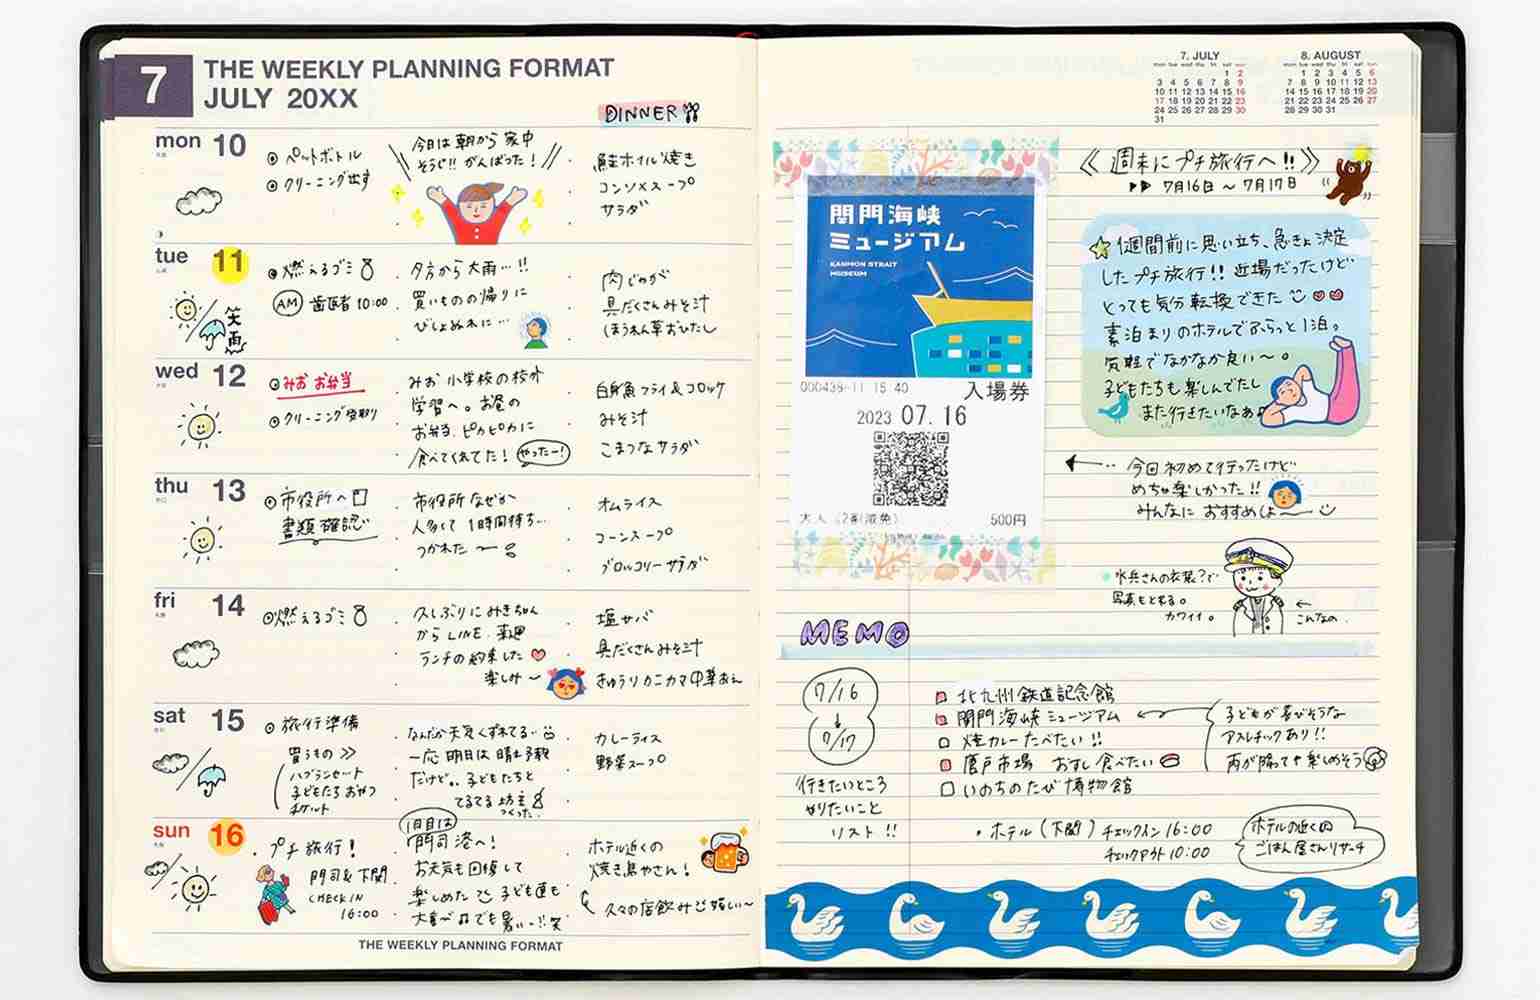 7
THE WEEKLY PLANNING FORMAT
JULY 20XX
DINNER
mon 10
ペットボトル
クリーニング出す
今日は朝から家中
そうじ!! がんばった!
鮭ホイル焼き
コンソメスープ
サラダ
tue 11
笑
雨
燃えるゴミ
AM 歯医者 10:00
夕方から大雨…!!
買いものの帰りに
びしょぬれに…
肉じゃが
具だくさんみそ汁
ほうれん草おひたし
wed 12
みお お弁当
クリーニング受取り
みお 小学校の校外
学習へ。お昼の
お弁当、ピカピカに
食べてくれてた! やったー!
白身魚フライ&コロッケ
みそ汁
こまつなサラダ
thu 13
市役所へ
書類確認
市役所なぜか
人多くて1時間待ち…
つかれた〜
オムライス
コーンスープ
ブロッコリーサラダ
fri 14
燃えるゴミ
久しぶりにみきちゃん
からLINE。来週
ランチの約束した
楽しみ〜
塩サバ
具だくさんみそ汁
きゅうりカニカマ中華あえ
sat 15
旅行準備
買うもの >>
ハブラシセット
子どもたちおやつ
チケット
なんだか天気くずれてる…
一応 明日は晴れ予報
だけど。。子どもたちと
てるてる坊主
つくった。
カレーライス
野菜スープ
sun 16
プチ旅行!
門司&下関
CHECK IN
16:00
1日目は
門司港へ!
お天気も回復して
楽しめた 子ども達も
大喜び でも暑い…!! 笑
ホテル近くの
焼き鳥やさん!
久々の店飲み 嬉しい〜
THE WEEKLY PLANNING FORMAT
7. JULY
mon tue wed thu fri sat sun
1 2
3 4 5 6 7 8 9
10 11 12 13 14 15 16
17 18 19 20 21 22 23
24 25 26 27 28 29 30
31
8. AUGUST
mon tue wed thu fri sat sun
1 2 3 4 5 6
7 8 9 10 11 12 13
14 15 16 17 18 19 20
21 22 23 24 25 26 27
28 29 30 31
《週末にプチ旅行へ!!》
7月16日〜7月17日
関門海峡
ミュージアム
KANMON STRAIT
MUSEUM
000438-11 15:40 入場券
2023 07.16
大人(2割減免) 500円
1週間前に思い立ち、急きょ決定
したプチ旅行!! 近場だったけど
とっても気分転換できた
素泊まりのホテルでふらっと1泊。
気軽でなかなか良い〜。
子どもたちも楽しんでたし
また行きたいなぁ
今回初めて行ったけど
めちゃ楽しかった!!
みんなにおすすめしよ〜
水兵さんの衣装?で
写真もとれる。
カワイイ。
こんなの.
MEMO
7/16
↓
7/17
行きたいところ
やりたいこと
リスト!!
北九州鉄道記念館
関門海峡ミュージアム
焼カレーたべたい!!
唐戸市場 おすし食べたい
いのちのたび博物館
子どもが喜びそうな
アスレチックあり!!
雨が降っても楽しめそう
・ホテル(下関) チェックイン 16:00
チェックアウト 10:00
ホテルの近くの
ごはん屋さんリサーチ